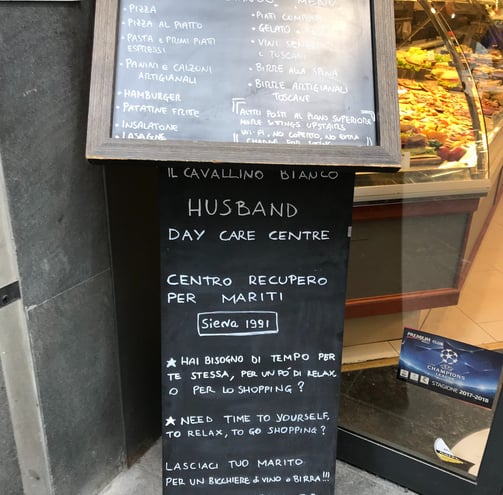 MENU
• PIZZA
• PIZZA AL PIATTO
• PASTA E PRIMI PIATI
ESPRESSI
• PANINI E CALZONI
ARTIGIANALI
• HAMBURGER
• PATATINE FRITTE
• INSALATONE
• LASAGNE
• PIATI
• GELATO
• VINI
TOSCANI
• BIRRE ALLA SPINA
• BIRRE ARTIGIANALI
TOSCANE
ALTRI POSTI AL PIANO SUPERIORE
MORE SITTINGS UPSTAIRS
WI-FI, NO COPERTO, NO EXTRA
IL CAVALLINO BIANCO
HUSBAND
DAY CARE CENTRE
CENTRO RECUPERO
PER MARITI
Siena 1991
★ HAI BISOGNO DI TEMPO PER
TE STESSA, PER UN PO' DI RELAX,
O PER LO SHOPPING?
★ NEED TIME TO YOURSELF,
TO RELAX, TO GO SHOPPING?
LASCIACI TUO MARITO
PER UN BICCHIERE di VINO o BIRRA!!!
PREMIUM CLUB
CHAMPIONS
LEAGUE
STAGIONE 2017-2018